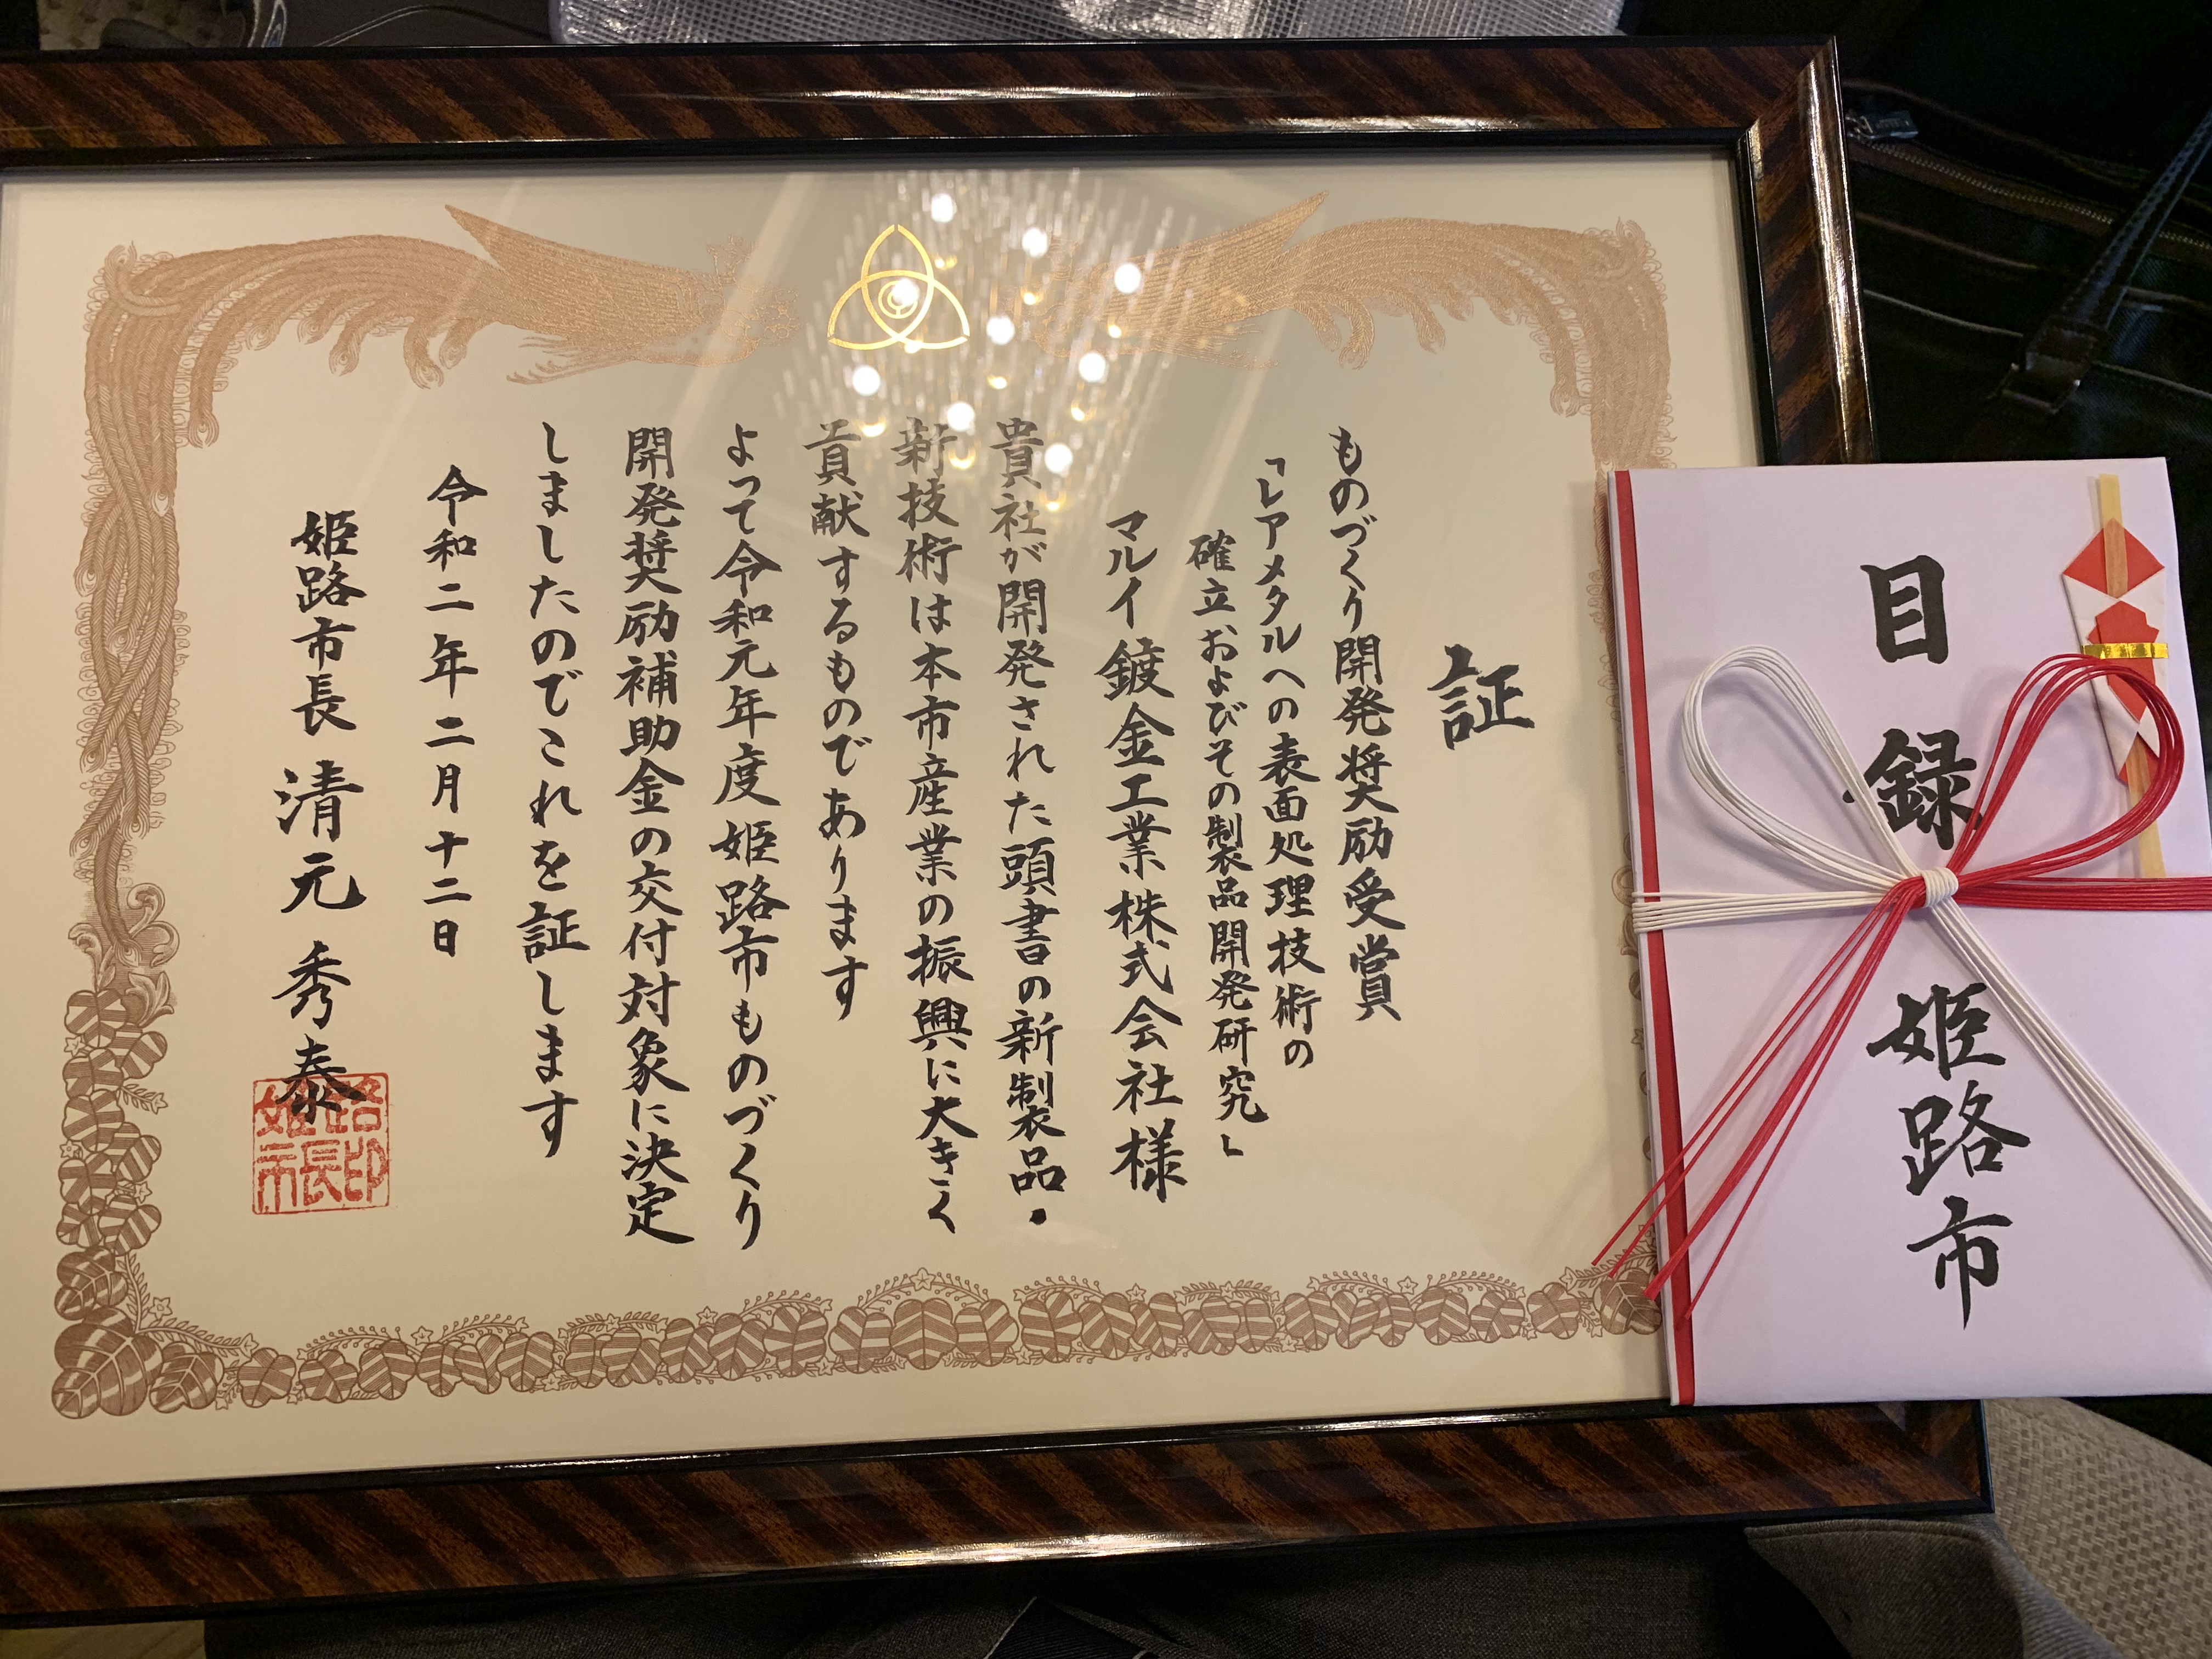 証
ものづくり開発奨励受賞
「レアメタルへの表面処理技術の
確立およびその製品開発研究」
マルイ鍍金工業株式会社様
貴社が開発された頭書の新製品・
新技術は本市産業の振興に大きく
貢献するものであります
よって令和元年度姫路市ものづくり
開発奨励補助金の交付対象に決定
しましたのでこれを証します
令和二年二月十二日
姫路市長 清元秀泰
姫路市長印
目録
姫路市